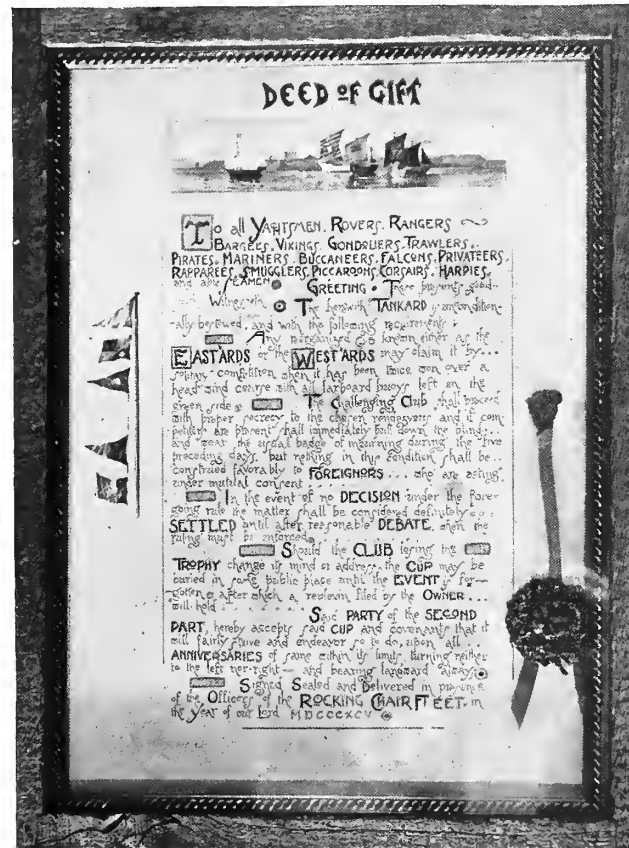 DEED OF GIFT
To all YAHTSMEN. ROVERS. RANGERS
BARGEES. VIKINGS. GONDOLIERS. TRAWLERS.
PIRATES. MARINERS. BUCCANEERS. FALCONS. PRIVATEERS.
RAPPAREES. SMUGGLERS. PICCAROONS. CORSAIRS. HARPIES.
and SEAMEN GREETING. These presents good-
Witnesseth. The herewith TANKARD is uncondition-
ally bestowed, and with the following requirements:
Any organized known either as the
EAST'ARDS or the WEST'ARDS may claim it by...
solitary competition when it has been twice won over a
head wind course with all larboard buoys left on the
green side. The Challenging Club shall proceed
with proper secrecy to the chosen rendezvous and if com-
petitors are present shall immediately pull down the blinds
and wear the usual badge of mourning during the five
preceding days, but nothing in this condition shall be..
construed favorably to FOREIGNORS... who are acting
under mutual consent
In the event of no DECISION under the fore-
going rule the matter shall be considered definitely...
SETTLED until after reasonable DEBATE. when the
ruling must be enforced.
Should the CLUB losing the
TROPHY change its mind or address, the CUP may be
buried in some public place until the EVENT is for-
gotten, after which a replevin filed by the OWNER...
will hold.......... Said PARTY of the SECOND
PART, hereby accepts said CUP and covenants that it
will fairly strive and endeavor so to do, upon all...
ANNIVERSARIES of same within its limits, turning neither
to the left nor right — and bearing landward always.
Signed Sealed and Delivered in presence
of the Officers of the ROCKING CHAIR FLEET. in
the Year of our Lord MDCCCXCV